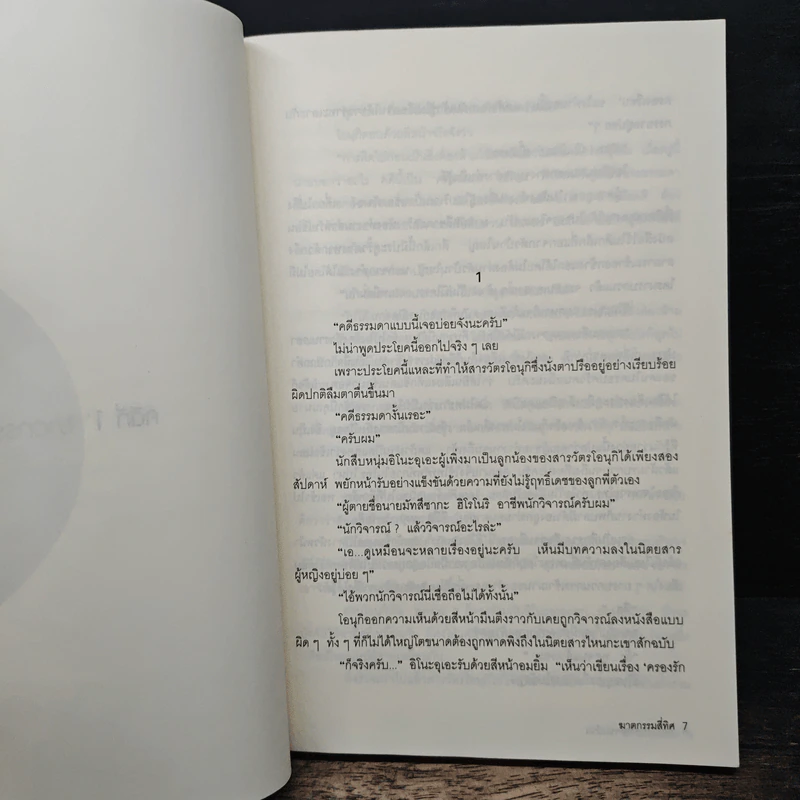 1
“คดีธรรมดาแบบนี้เจอบ่อยจังนะครับ”
ไม่น่าพูดประโยคนี้ออกไปจริง ๆ เลย
เพราะประโยคนี้แหละที่ทำให้สารวัตรโอนุกิซึ่งนั่งตาปรืออยู่อย่างเรียบร้อย
ผิดปกติลืมตาตื่นขึ้นมา
“คดีธรรมดางั้นเรอะ”
“ครับผม”
นักสืบหนุ่มอิโนะอุเอะผู้เพิ่งมาเป็นลูกน้องของสารวัตรโอนุกิได้เพียงสอง
สัปดาห์ พยักหน้ารับอย่างแข็งขันด้วยความที่ยังไม่รู้ฤทธิ์เดชของลูกพี่ตัวเอง
“ผู้ตายชื่อนายมัทสึซากะ ฮิโรโนริ อาชีพนักวิจารณ์ครับผม”
“นักวิจารณ์ ? แล้ววิจารณ์อะไรล่ะ”
“เอ...ดูเหมือนจะหลายเรื่องอยู่นะครับ เห็นมีบทความลงในนิตยสาร
ผู้หญิงอยู่บ่อย ๆ”
“ไอ้พวกนักวิจารณ์นี่เชื่อถือไม่ได้ทั้งนั้น”
โอนุกิออกความเห็นด้วยสีหน้ามึนตึงราวกับเคยถูกวิจารณ์ลงหนังสือแบบ
ผิด ๆ ทั้ง ๆ ที่ก็ไม่ได้ใหญ่โตขนาดต้องถูกพาดพิงถึงในนิตยสารไหนกะเขาสักฉบับ
“ก็จริงครับ...” อิโนะอุเอะรับด้วยสีหน้าอมยิ้ม “เห็นว่าเขียนเรื่อง ‘ครองรัก
ฆาตกรรมสี่ทิศ 7